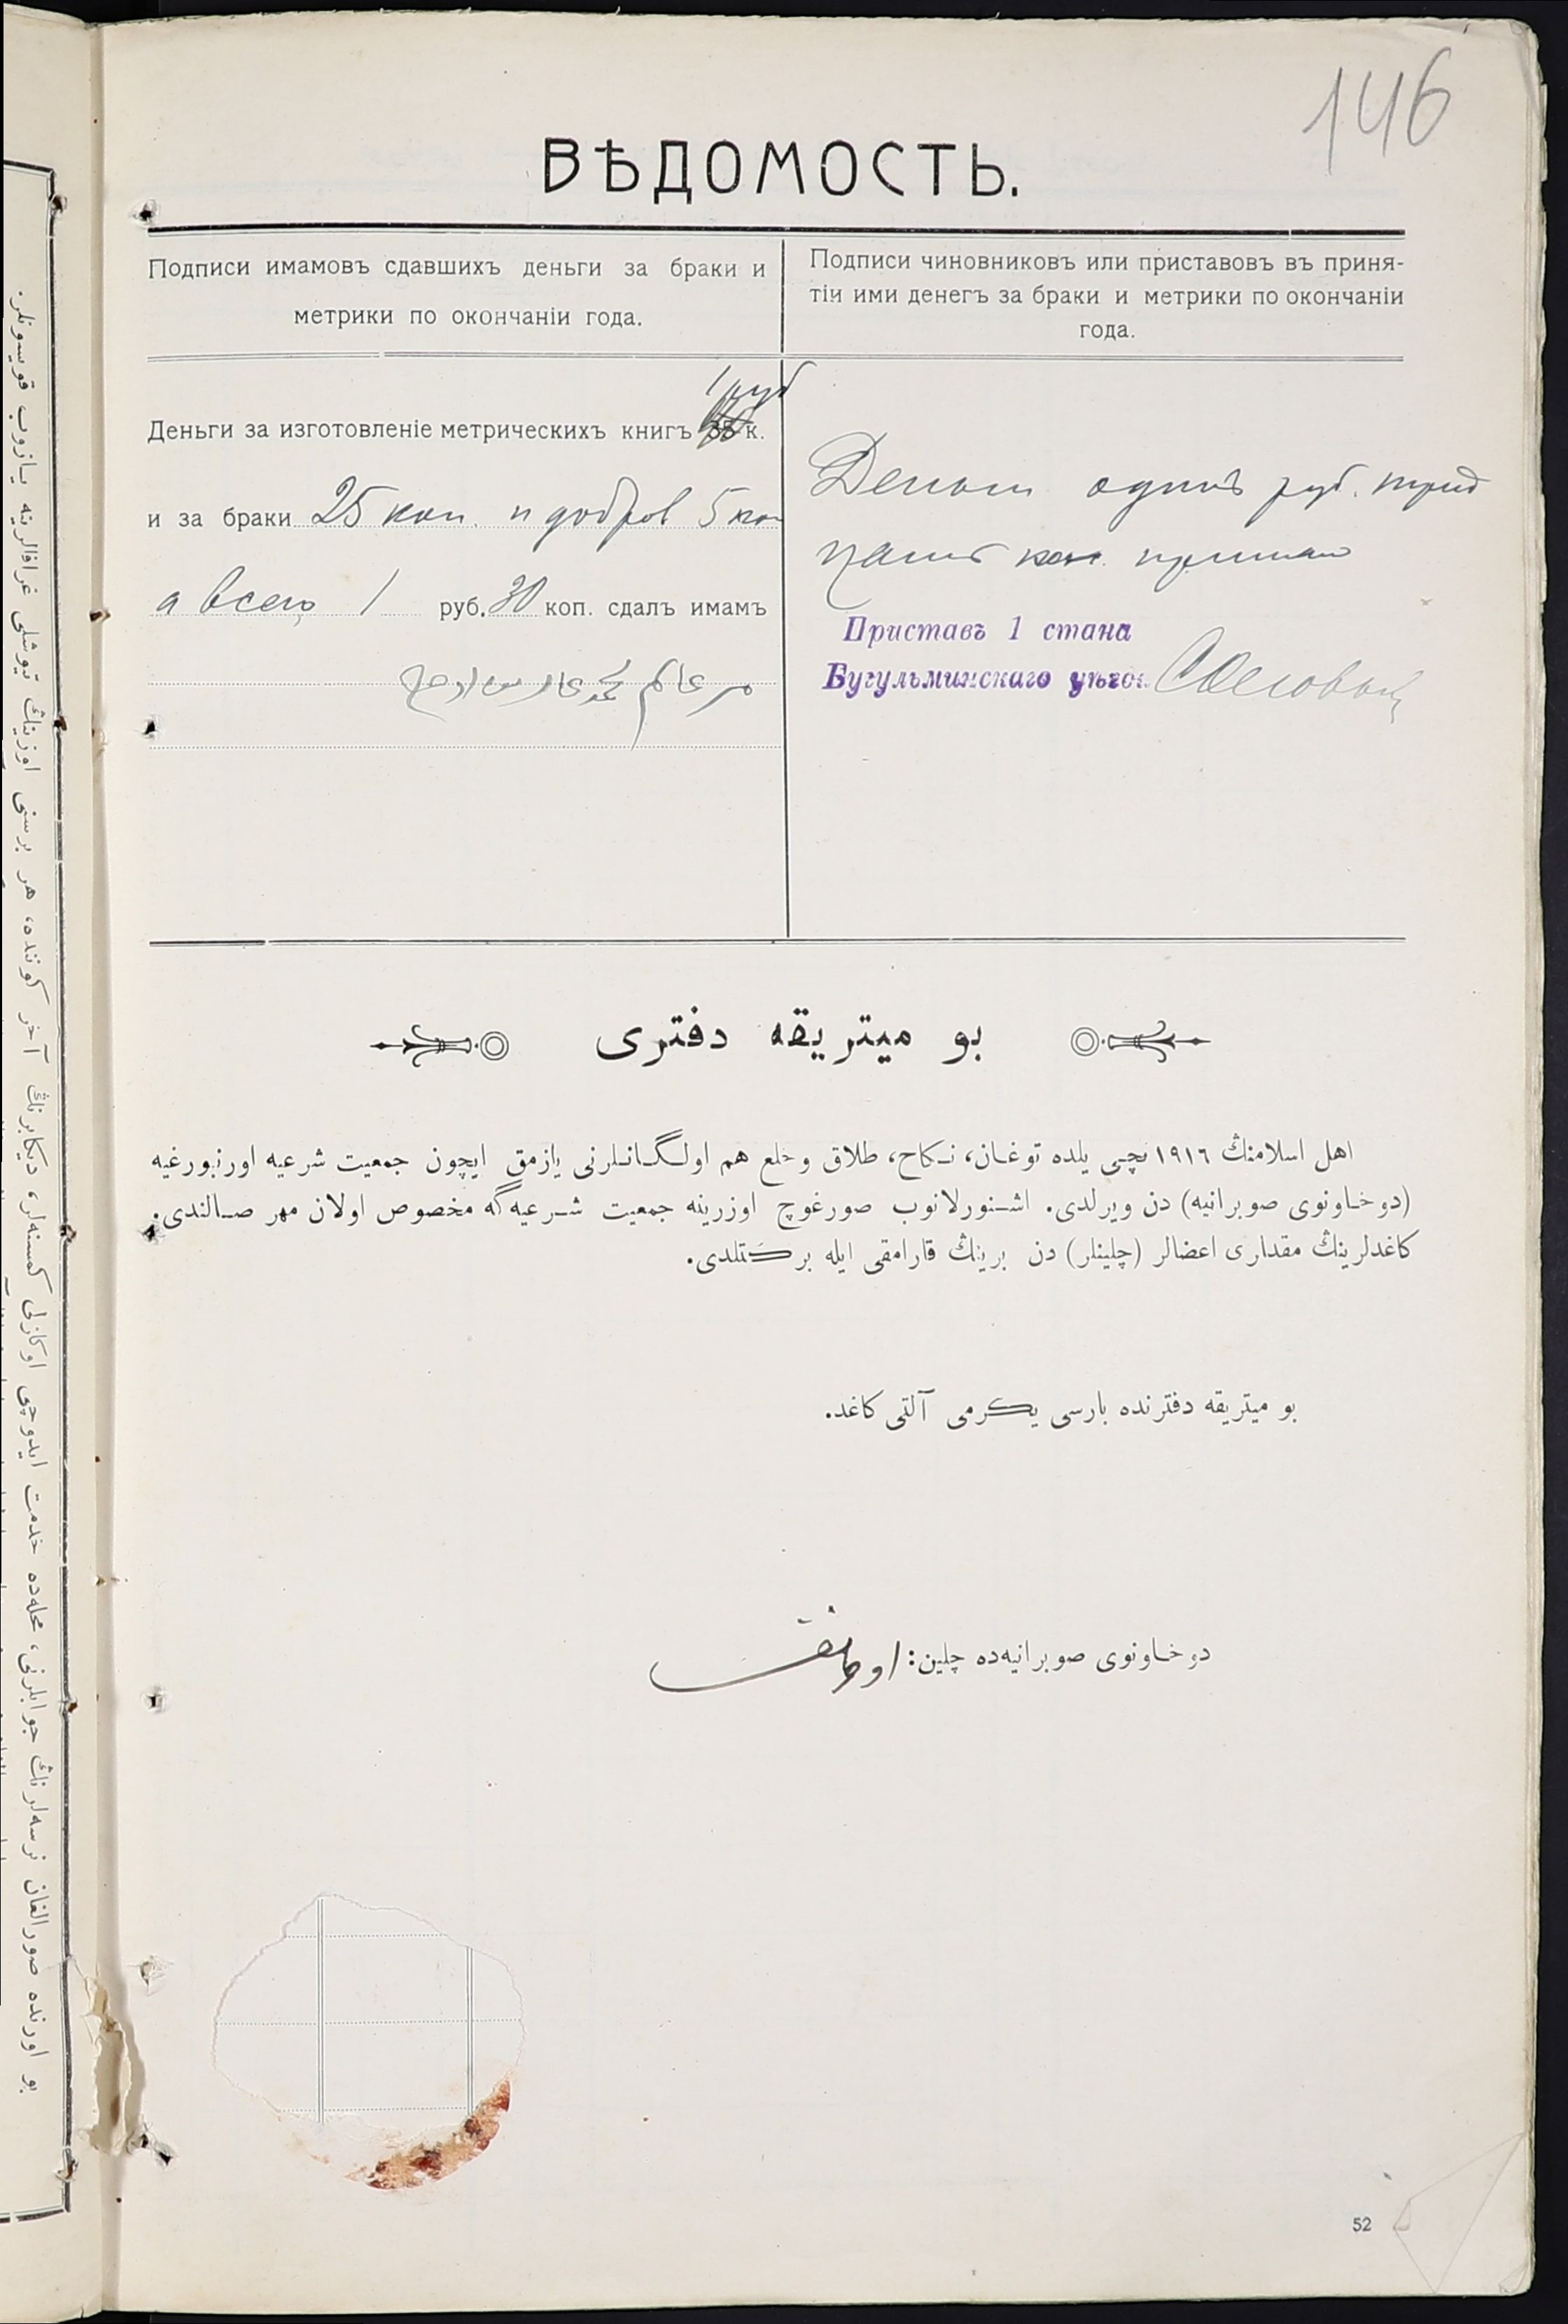 146
ВѢДОМОСТЬ.
Подписи имамовъ сдавшихъ деньги за браки и
метрики по окончаніи года.
Подписи чиновниковъ или приставовъ въ приня-
тіи ими денегъ за браки и метрики по окончаніи
года.
1 руб
Деньги за изготовленіе метрическихъ книгъ к.
и за браки 25 коп. и добров 5 коп
а всего 1 руб. 30 коп. сдалъ имамъ
Деньги одинъ руб. трид
цать коп. принял
Приставъ 1 стана
Бугульминскаго уѣзда
بو ميتريقه دفترى
اهل اسلامنڭ ١٩١٦ نچى يلده توغان، نكاح، طلاق وخلع هم اولگانلرنى يازمق ايچون جمعيت شرعيه اورنبورغيه
(دوخاونوى صوبرانيه) دن ويرلدى. اشنورلانوب صورغوچ اوزرينه جمعيت شرعيه گه مخصوص اولان مهر صالندى.
كاغدلرينڭ مقدارى اعضالر (چلينلر) دن برينڭ قارامقى ايله بركتلدى.
بو ميتريقه دفترنده بارسى يكرمى آلتى كاغد.
دوخاونوى صوبرانيه‌ده چلين:
52
بو اورنده صورالغان نرسه‌لرنڭ جوابلرنى، محله‌ده خدمت ايدوچى اوكازلى كمسنه‌لر، ديكابرنڭ آخر كوننده، هر برسى اوزينڭ تيوشلى غرافالرينه يازوب قويسونلر.